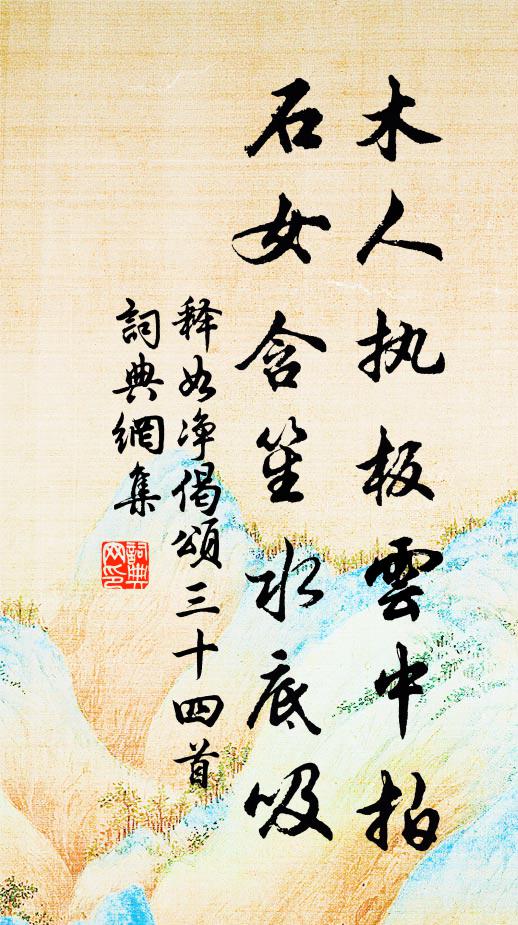 木人执板雲中拍
石女含笙水底吸
释如净偈颂三十四首
詞典網集
詞典网印